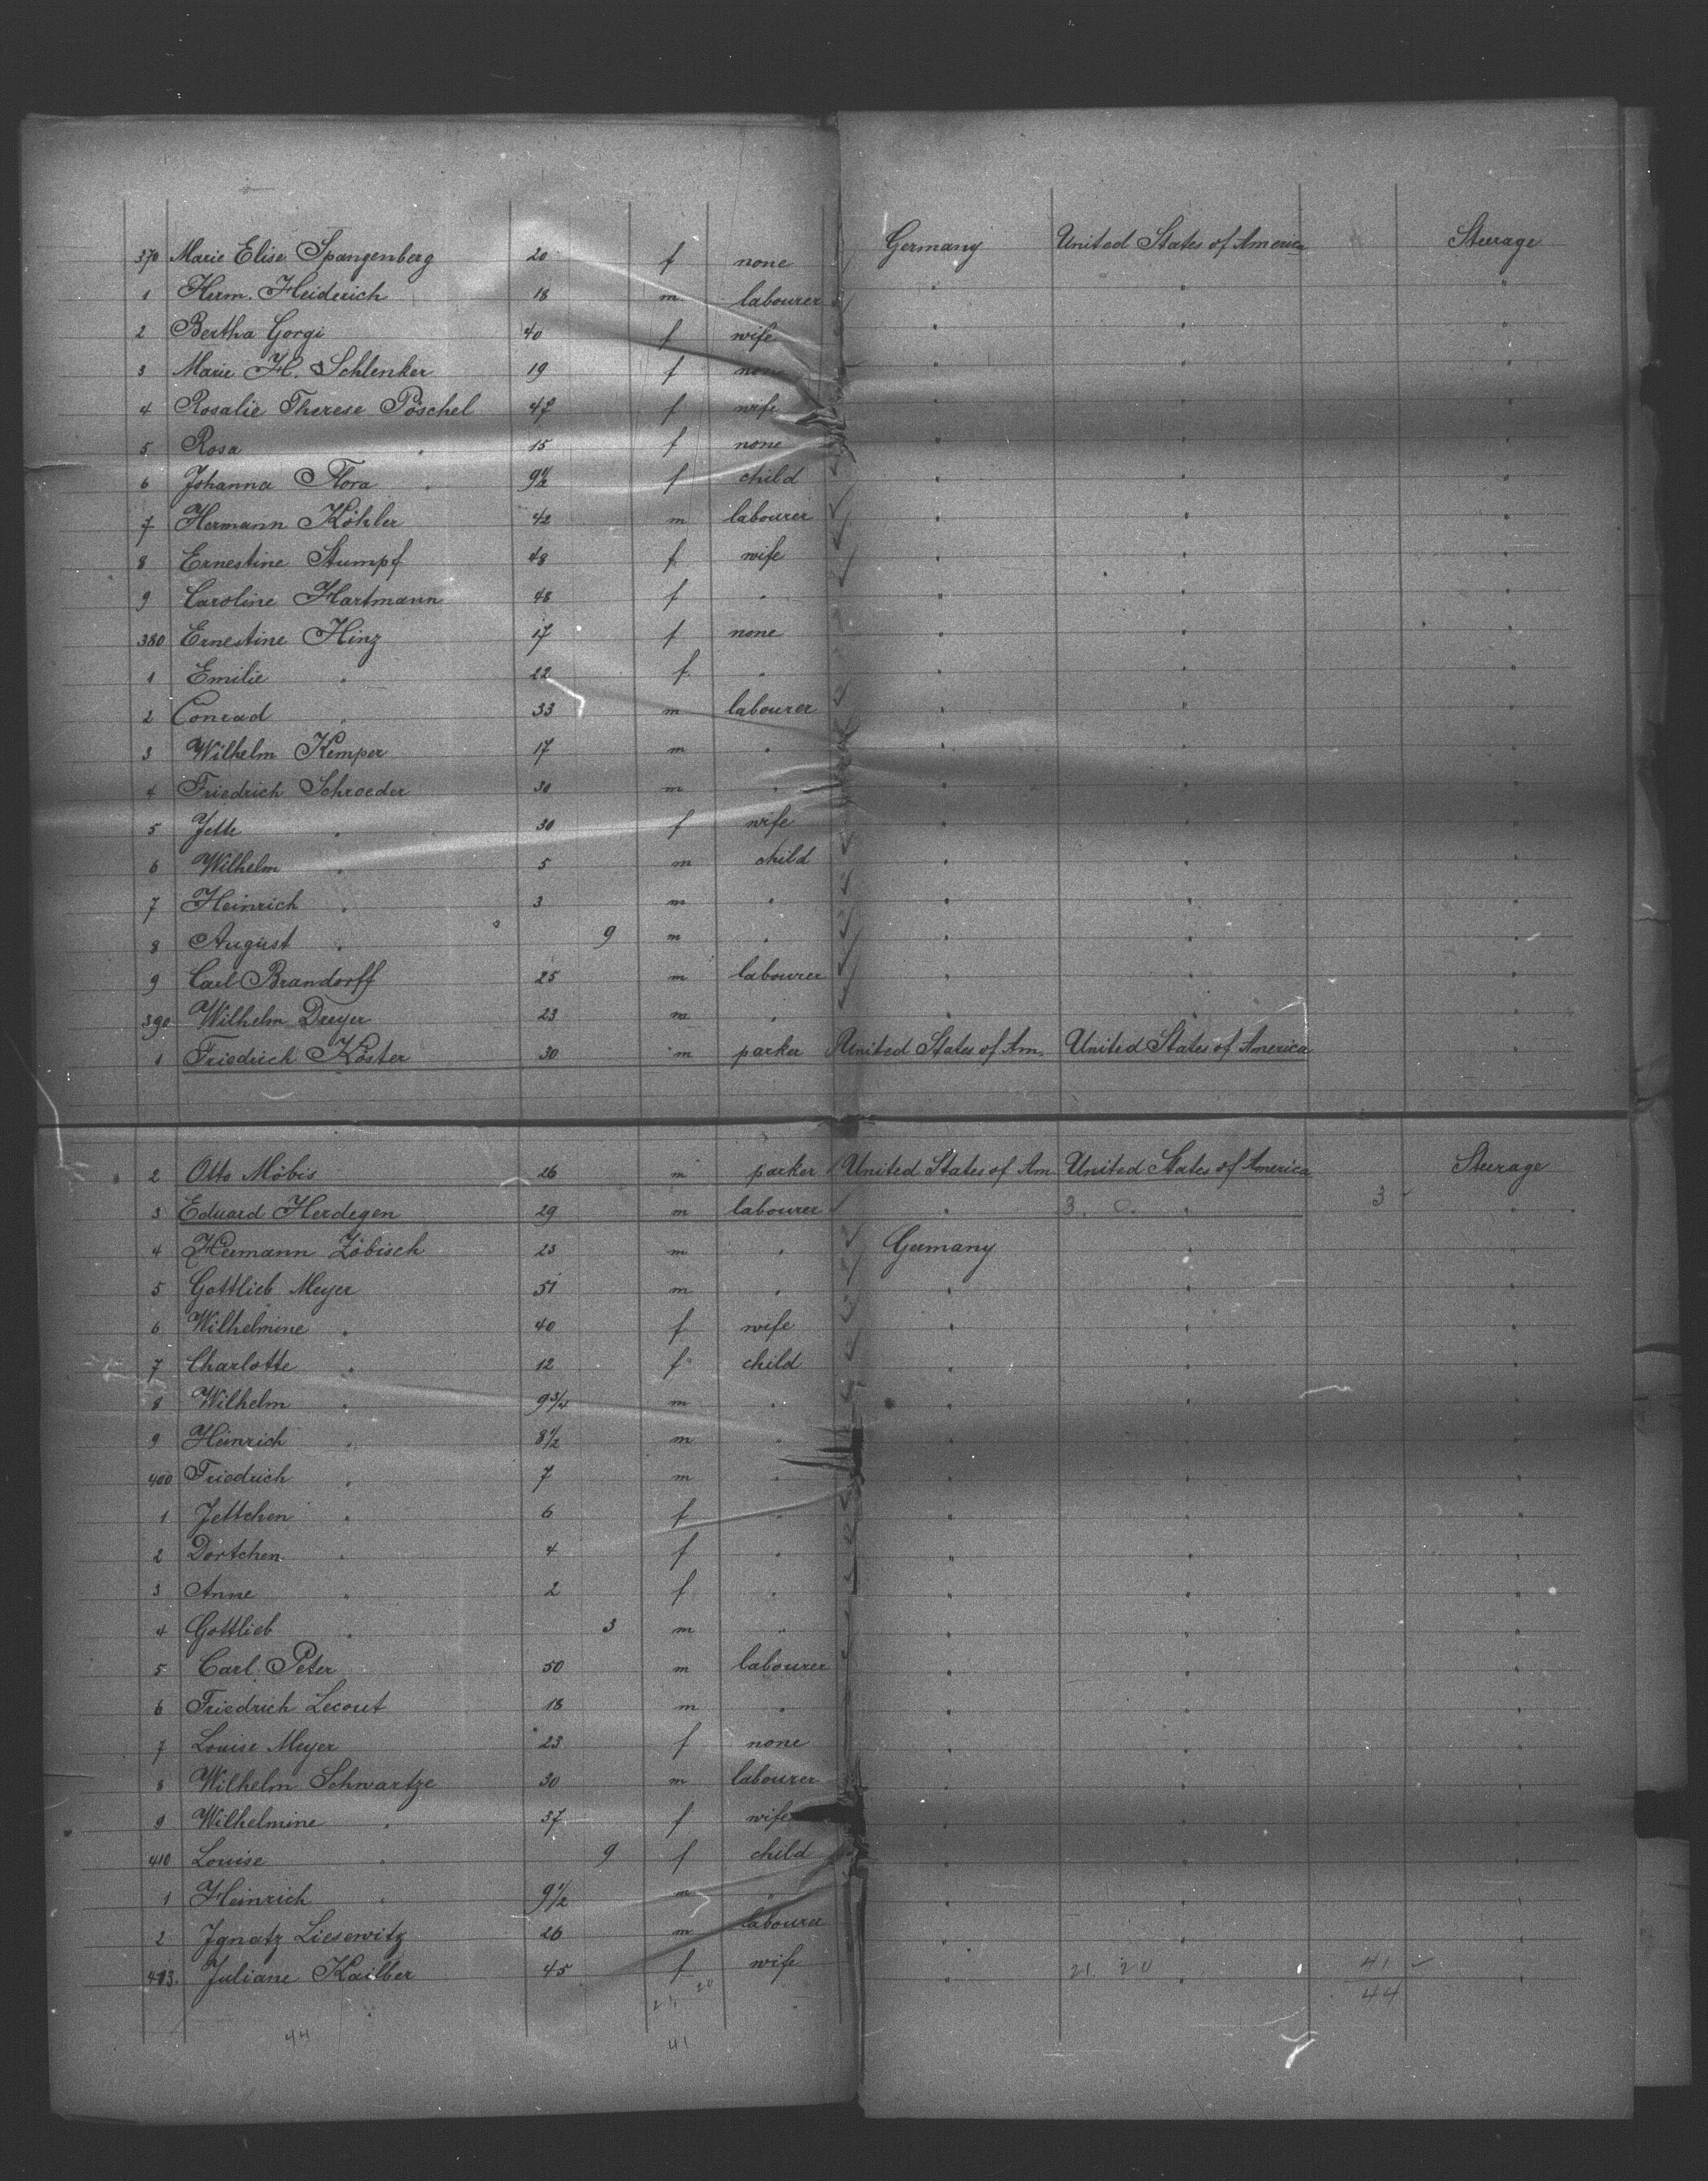 370 Marie Elise Spangenberg 20 f none Germany United States of America Steerage
1 Herm. Heiderich 18 m labourer " " "
2 Bertha Gorgi 40 f wife " " "
3 Marie H. Schlenker 19 f none " " "
4 Rosalie Therese Pöschel 47 f wife " " "
5 Rosa " 15 f none " " "
6 Johanna Flora " 9½ f child " " "
7 Hermann Köhler 42 m labourer " " "
8 Ernestine Stumpf 48 f wife " " "
9 Caroline Hartmann 48 f " " " "
380 Ernestine Hinz 17 f none " " "
1 Emilie " 22 f " " " "
2 Conrad " 33 m labourer " " "
3 Wilhelm Kemper 17 m " " " "
4 Friedrich Schroeder 30 m " " " "
5 Jette " 30 f wife " " "
6 Wilhelm " 5 m child " " "
7 Heinrich " 3 m " " " "
8 August " 9 m " " " "
9 Carl Brandorff 25 m labourer " " "
390 Wilhelm Dreyer 23 m " " " "
1 Friedrich Köster 30 m parker United States of Am. United States of America "
2 Otto Möbis 26 m parker United States of Am United States of America Steerage
3 Eduard Herdegen 29 m labourer " 3. 0. " 3 "
4 Hermann Zöbisch 23 m " Germany " "
5 Gottlieb Meyer 51 m " " " "
6 Wilhelmine " 40 f wife " " "
7 Charlotte " 12 f child " " "
8 Wilhelm " 9¾ m " " " "
9 Heinrich " 8½ m " " " "
400 Friedrich " 7 m " " " "
1 Jettchen " 6 f " " " "
2 Dortchen " 4 f " " " "
3 Anne " 2 f " " " "
4 Gottlieb " 3 m " " " "
5 Carl Peter 50 m labourer " " "
6 Friedrich Lecout 18 m " " " "
7 Louise Meyer 23 f none " " "
8 Wilhelm Schwartze 30 m labourer " " "
9 Wilhelmine " 37 f wife " " "
410 Louise " 9 f child " " "
1 Heinrich " 9½ m " " " "
2 Ignatz Liesewitz 26 m labourer " " "
413. Juliane Kailber 45 f wife " 21. 20 " 41 "
21. 20 44
44 41